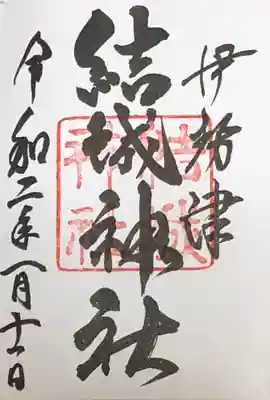 伊勢津
結城神社
令和二年一月十一日